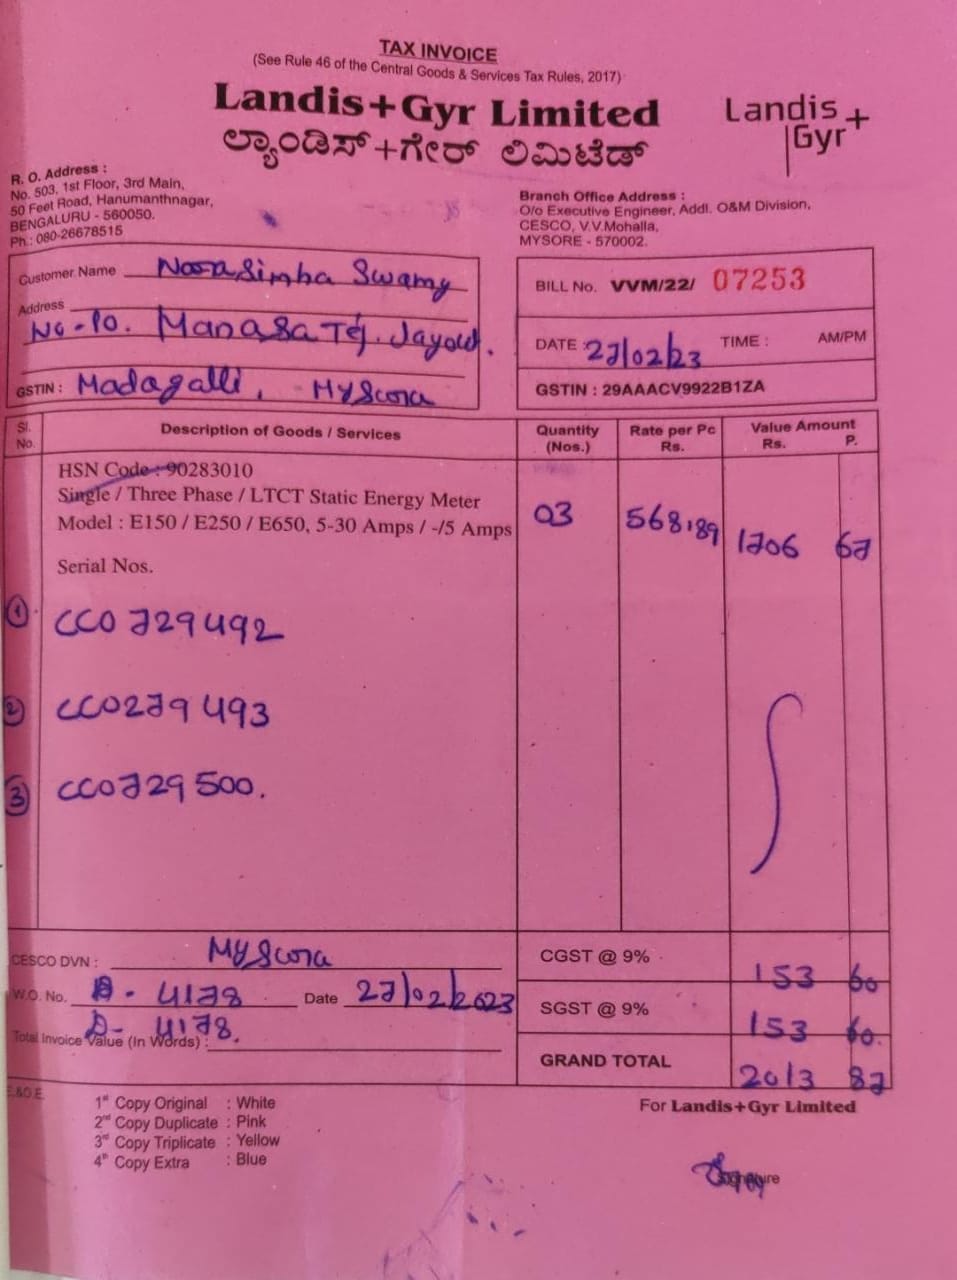 TAX INVOICE
(See Rule 46 of the Central Goods & Services Tax Rules, 2017)
Landis+Gyr Limited
ಲ್ಯಾಂಡಿಸ್+ಗೇರ್ ಲಿಮಿಟೆಡ್
Landis
Gyr+
R. O. Address :
No. 503, 1st Floor, 3rd Main,
50 Feet Road, Hanumanthnagar,
BENGALURU - 560050.
Ph.: 080-26678515
Branch Office Address :
O/o Executive Engineer, Addl. O&M Division,
CESCO, V.V.Mohalla,
MYSORE - 570002.
Customer Name Narasimha Swamy
Address
No-10. Manasa Tej. Jayoud.
GSTIN : Madagalli, - Myscora
BILL No. VVM/22/ 07253
DATE : 27/02/23 TIME : AM/PM
GSTIN : 29AAACV9922B1ZA
Sl. No. Description of Goods / Services Quantity (Nos.) Rate per Pc Rs. Value Amount Rs. P.
HSN Code : 90283010
Single / Three Phase / LTCT Static Energy Meter
Model : E150 / E250 / E650, 5-30 Amps / -/5 Amps 03 568.89 1706 67
Serial Nos.
1 CC0729492
2 CC0279493
3 CC0729500.
CESCO DVN : Myscora
W.O. No. D - 4178 Date 27/02/2023
D- 4178.
Total Invoice Value (In Words) :
CGST @ 9% 153 60
SGST @ 9% 153 60.
GRAND TOTAL 2013 87
E.&O.E.
1st Copy Original : White
2nd Copy Duplicate : Pink
3rd Copy Triplicate : Yellow
4th Copy Extra : Blue
For Landis+Gyr Limited
Signature